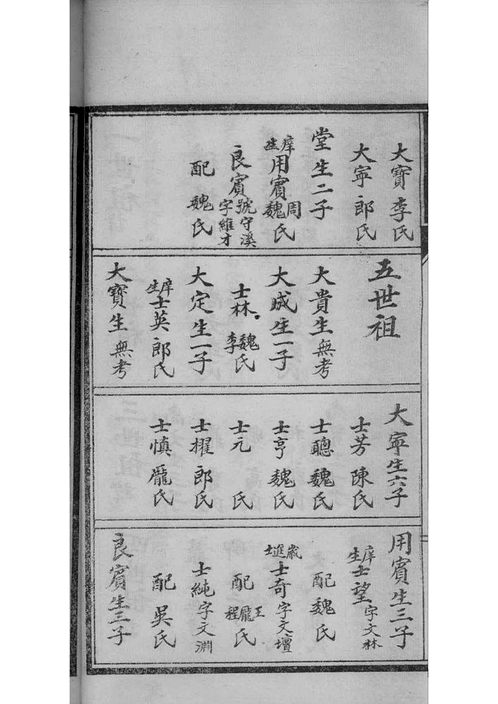 大寳李氏
大寜郎氏
堂生二子
庠生用賓周魏氏
良賓號守溪字維才
配魏氏
五世祖
大貴生無考
大成生一子
士林魏李氏
大定生一子
庠生士英郎氏
大寳生無考
大寜生六子
士芳陳氏
士聰魏氏
士亨魏氏
士元氏
士擢郎氏
士慎龐氏
用賓生三子
庠生士望字文林
配魏氏
歲進士士奇字文壇
配王龐程氏
士純字文淵
配吳氏
良賓生三子